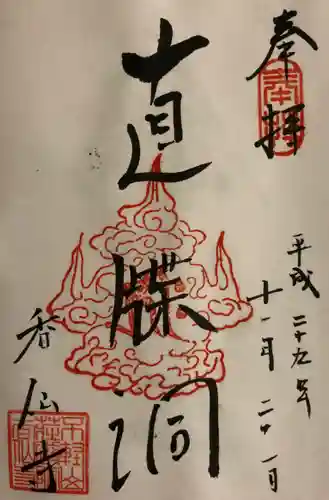 奉拝
直牒洞
平成二十九年
十一月二十一日
香仙寺